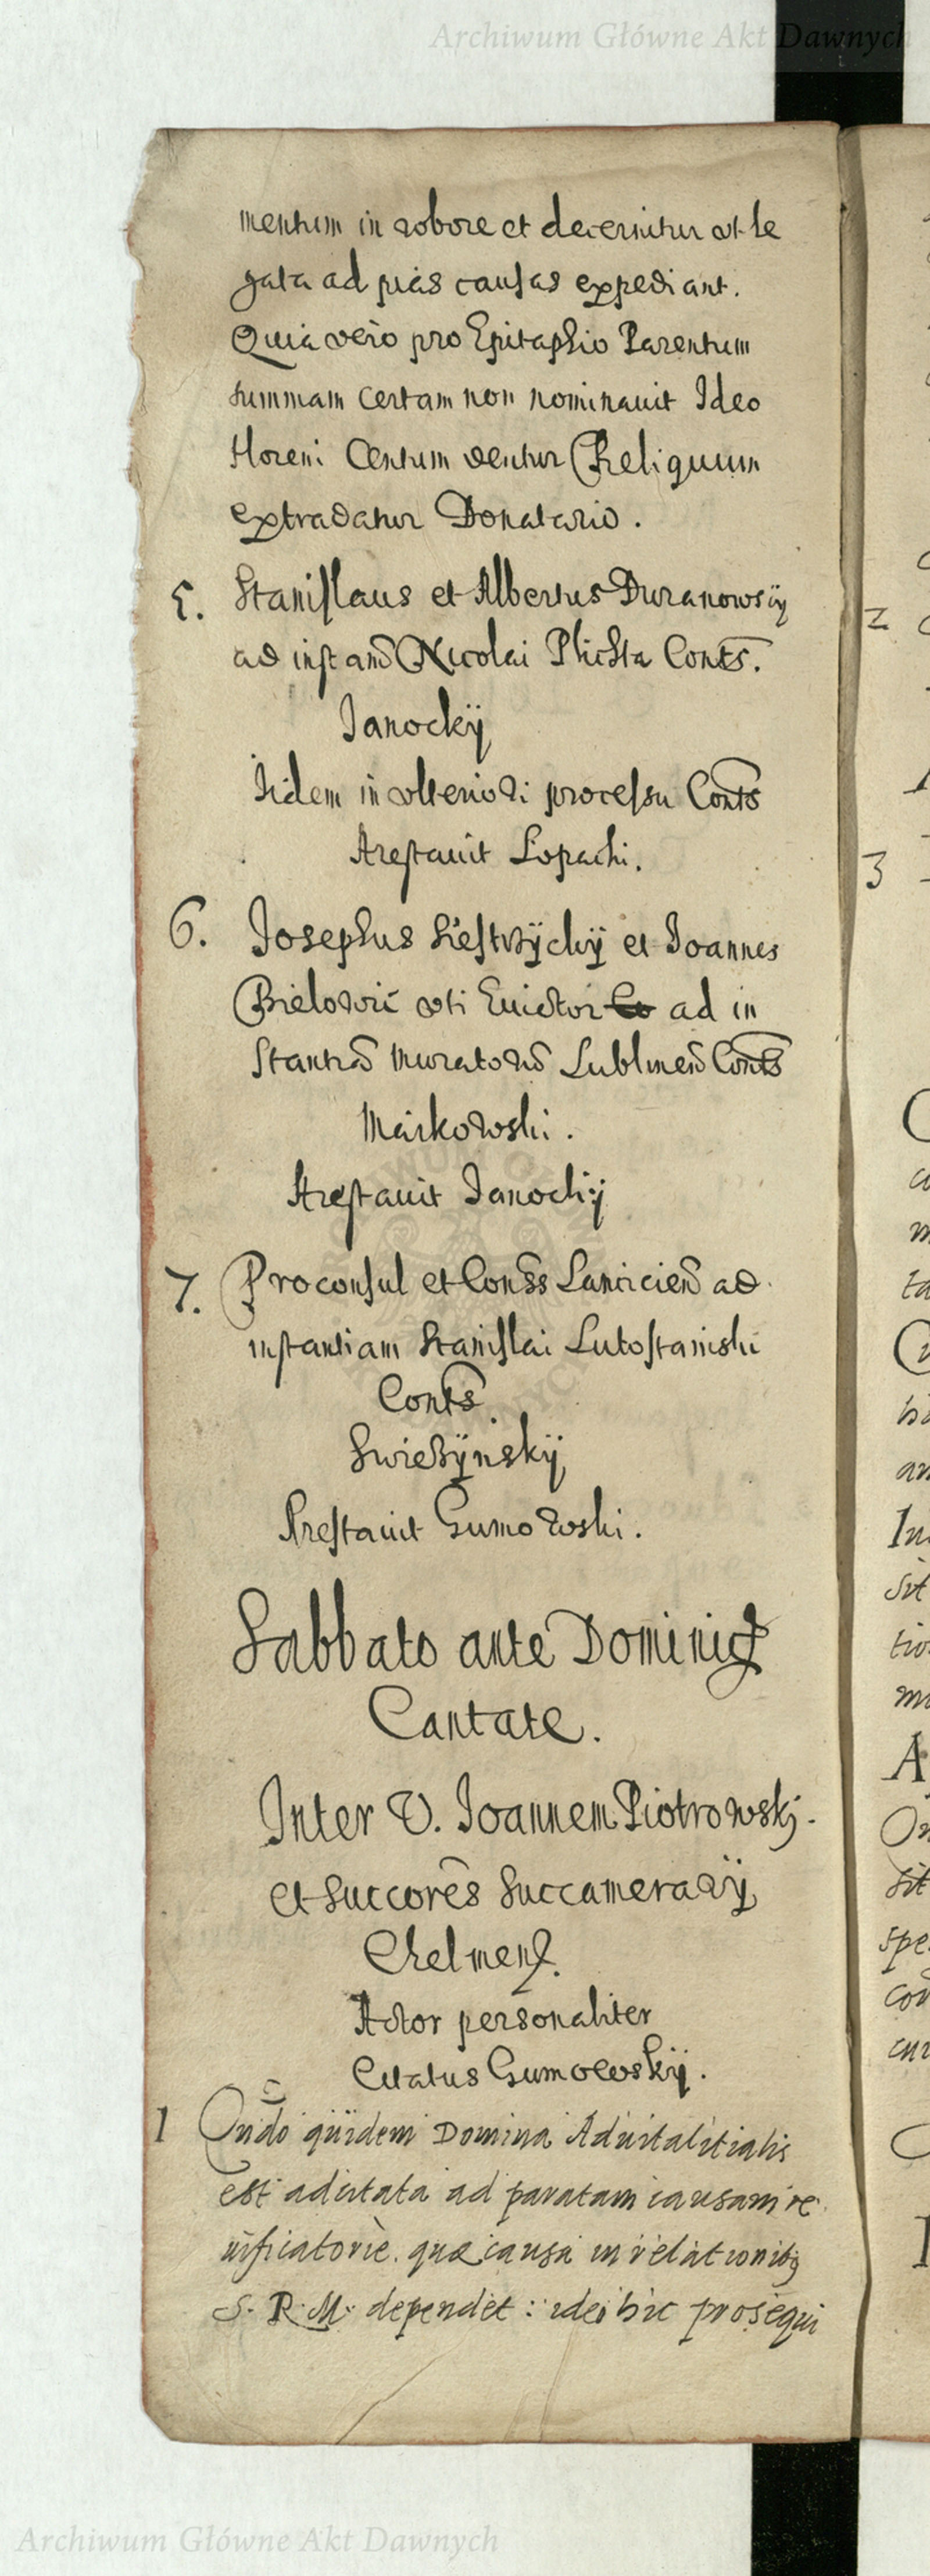 Archiwum Główne Akt Dawnych
mentum in robore et decernitur ut le
gata ad pias causas expediant.
Quia vero pro Epitaphio Parentum
summam certam non nominauit Ideo
floreni Centum dentur Reliquum
extradatur Donatario.
5. Stanislaus et Albertus Duranowsÿ
ad instan Nicolai Plichta Conts.
Janockÿ
Iidem in ulteriori processu Conts
Arestauit Lopachi.
6. Josephus et Joannes
uti Euictor ad in
stantia muratoru Lublinen Conts
Markowski.
Arestauit Janockij
7. Proconsul et Conss Lanicien ad
instantiam Stanislai Lutostanski
Conts
Swiezÿnskÿ
Arestauit Gumowski.
Sabbato ante Dominicẜ
Cantate.
Inter V. Joannem Piotrowskj.
et succores succamerarÿ
Chelmens.
Actor personaliter
Citatus Gumowskÿ.
1 Qundo quidem Domina Aduitalitialis
est adcitata ad paratam causam re
uificatorie. quæ causa in relationibꝫ
S. R. M. dependet: ideo hic prosequi
2
3
Archiwum Główne Akt Dawnych